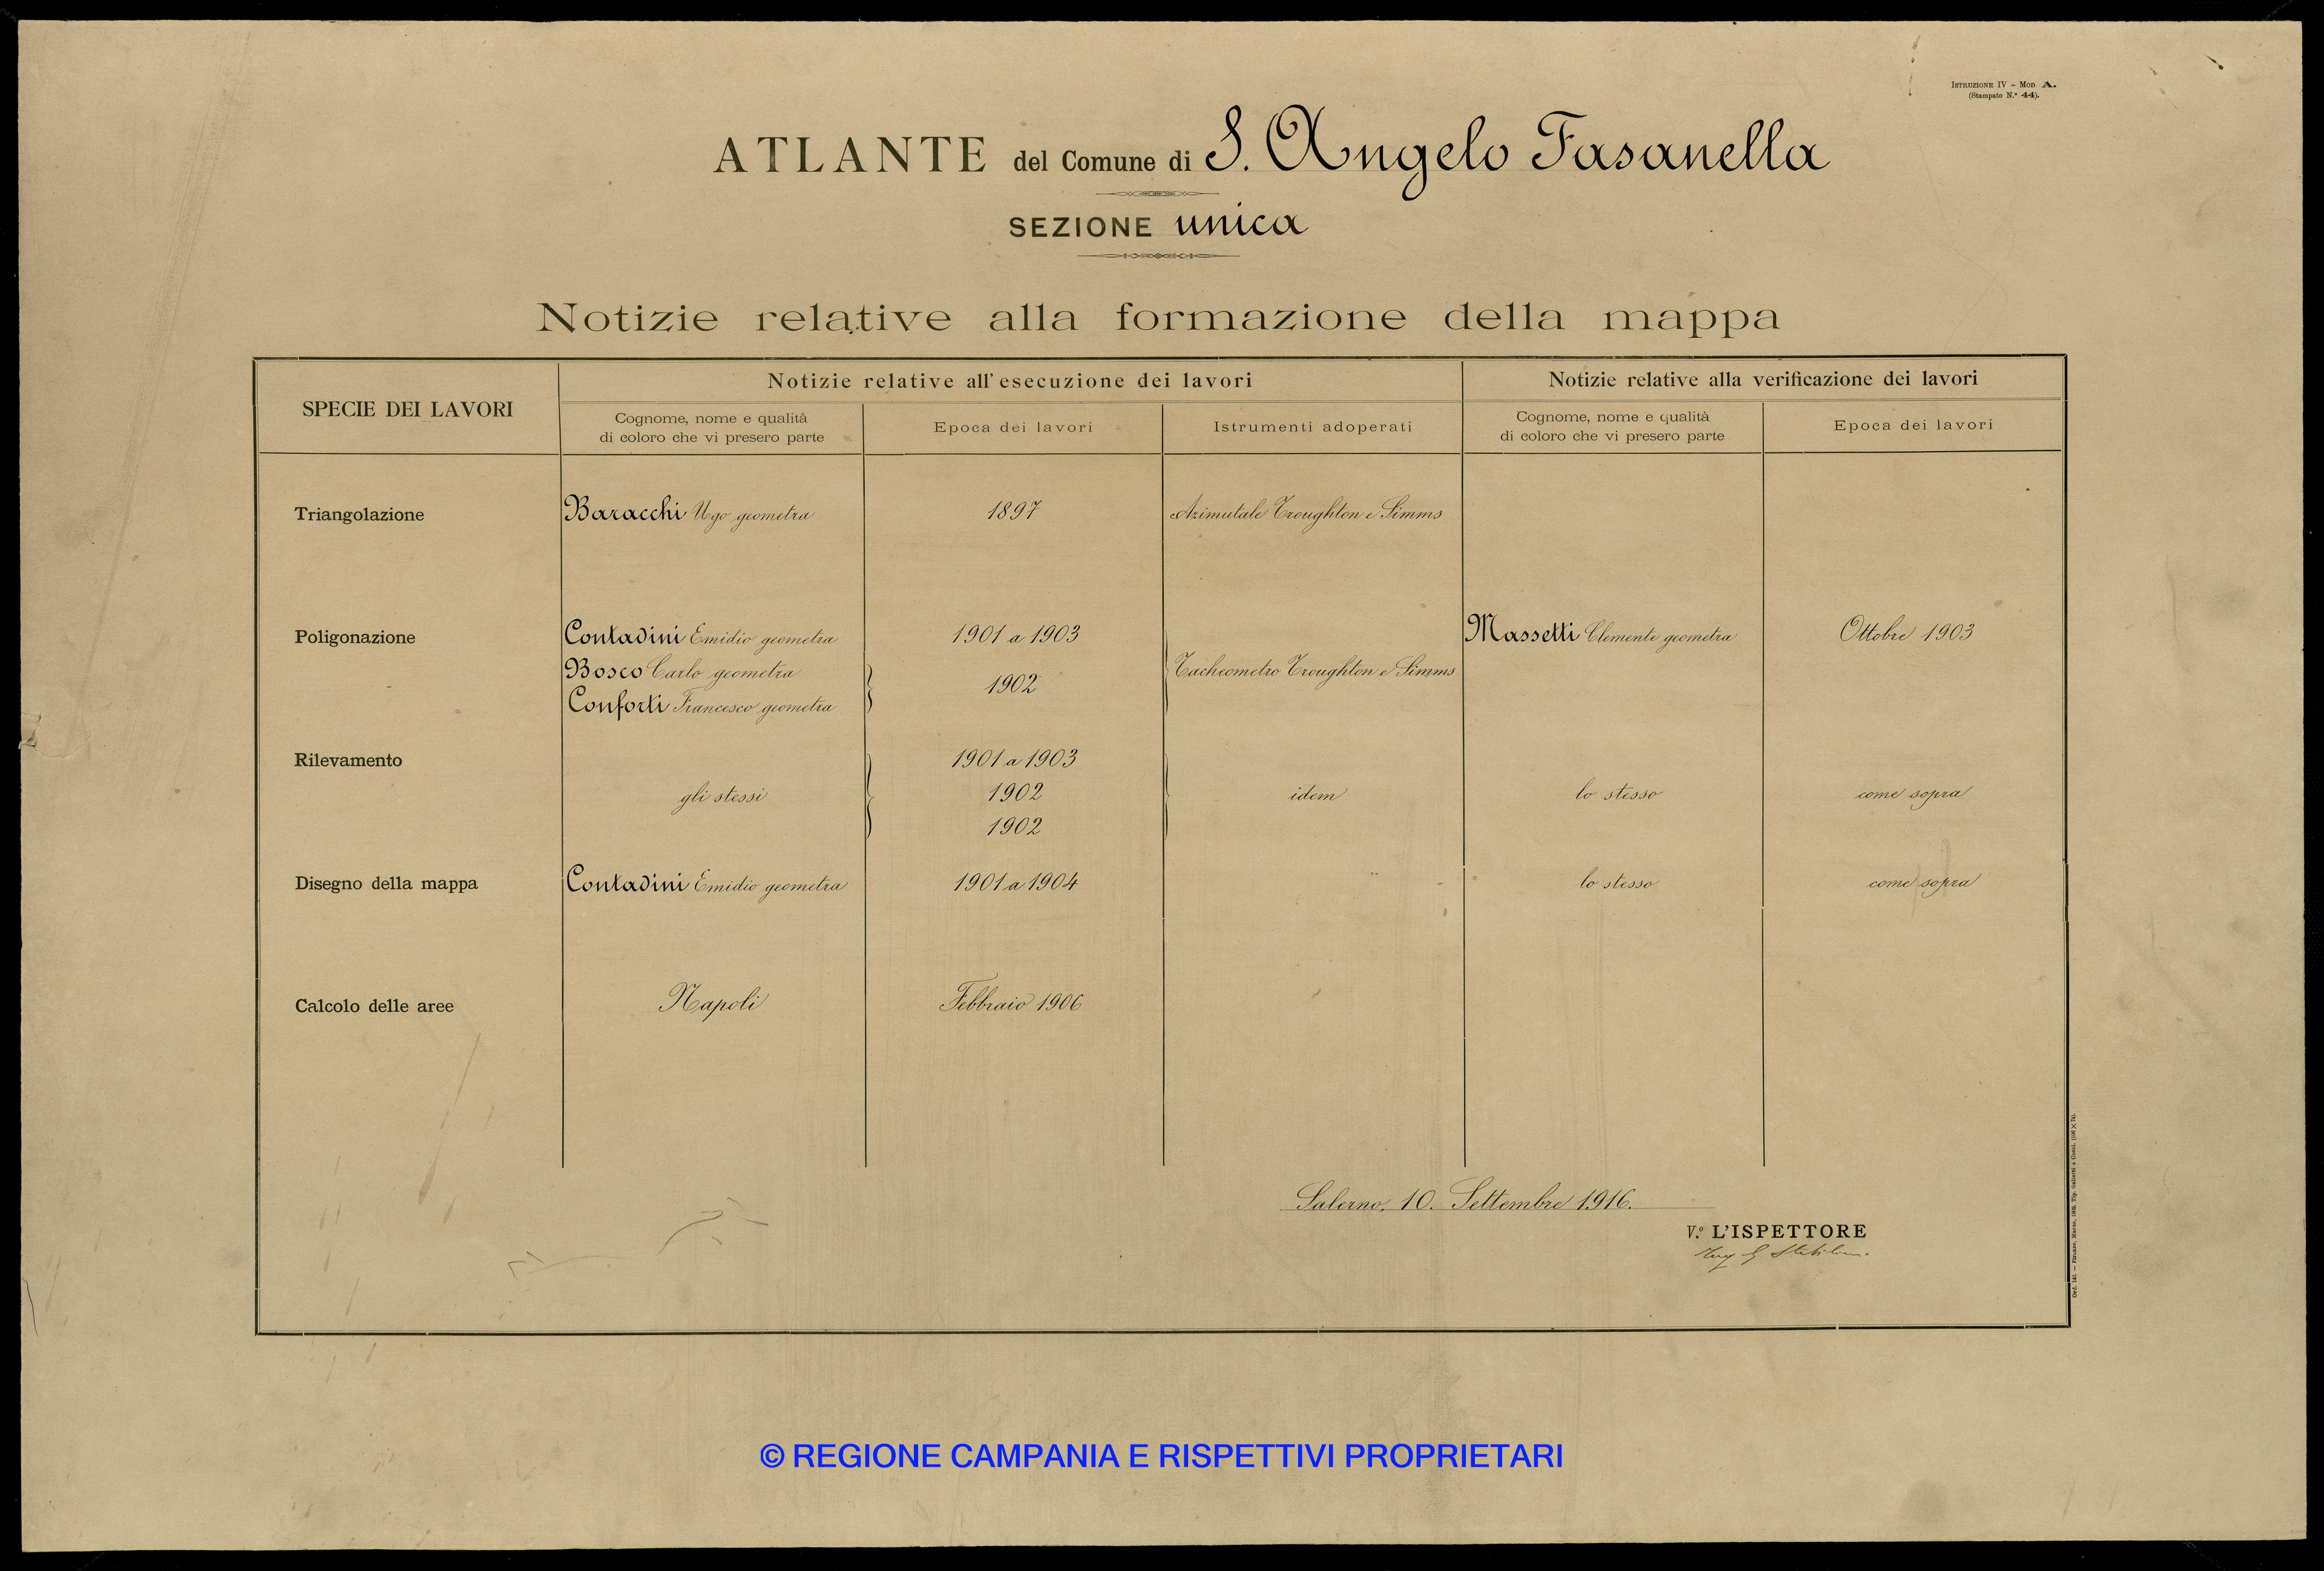 ISTRUZIONE IV – MOD. A.
(Stampato N.° 44).
ATLANTE del Comune di S. Angelo Fasanella
SEZIONE unica
Notizie relative alla formazione della mappa
SPECIE DEI LAVORI
Notizie relative all'esecuzione dei lavori
Notizie relative alla verificazione dei lavori
Cognome, nome e qualità
di coloro che vi presero parte
Epoca dei lavori
Istrumenti adoperati
Cognome, nome e qualità
di coloro che vi presero parte
Epoca dei lavori
Triangolazione
Baracchi Ugo geometra
1897
Azimutale Troughton e Simms
Poligonazione
Contadini Emidio geometra
Bosco Carlo geometra
Conforti Francesco geometra
1901 a 1903
1902
Tacheometro Troughton e Simms
Massetti Clemente geometra
Ottobre 1903
Rilevamento
gli stessi
1901 a 1903
1902
1902
idem
lo stesso
come sopra
Disegno della mappa
Contadini Emidio geometra
1901 a 1904
lo stesso
come sopra
Calcolo delle aree
Napoli
Febbraio 1906
Salerno, 10. Settembre 1916.
V.° L'ISPETTORE
© REGIONE CAMPANIA E RISPETTIVI PROPRIETARI